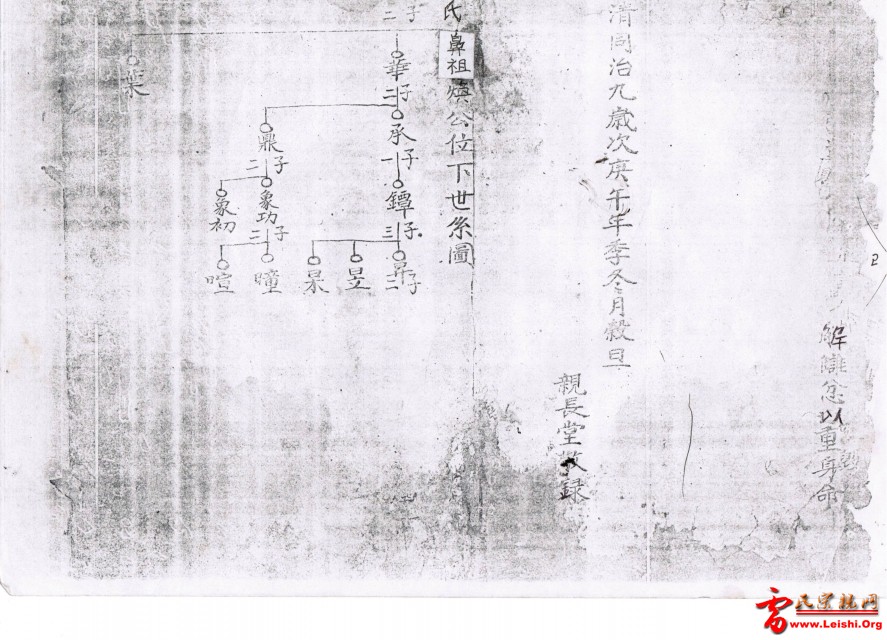 解讎忿以重身命
清同治九歲次庚午年季冬月穀旦
親長堂敬録
氏鼻祖煥公位下世系圖
子二
華
子二
承
子一
鐔
子三
昇
子二
昱
杲
鼎
子二
象功
子三
象初
瞳
暄
葉
2
雷氏宗親网
www.Leishi.Org